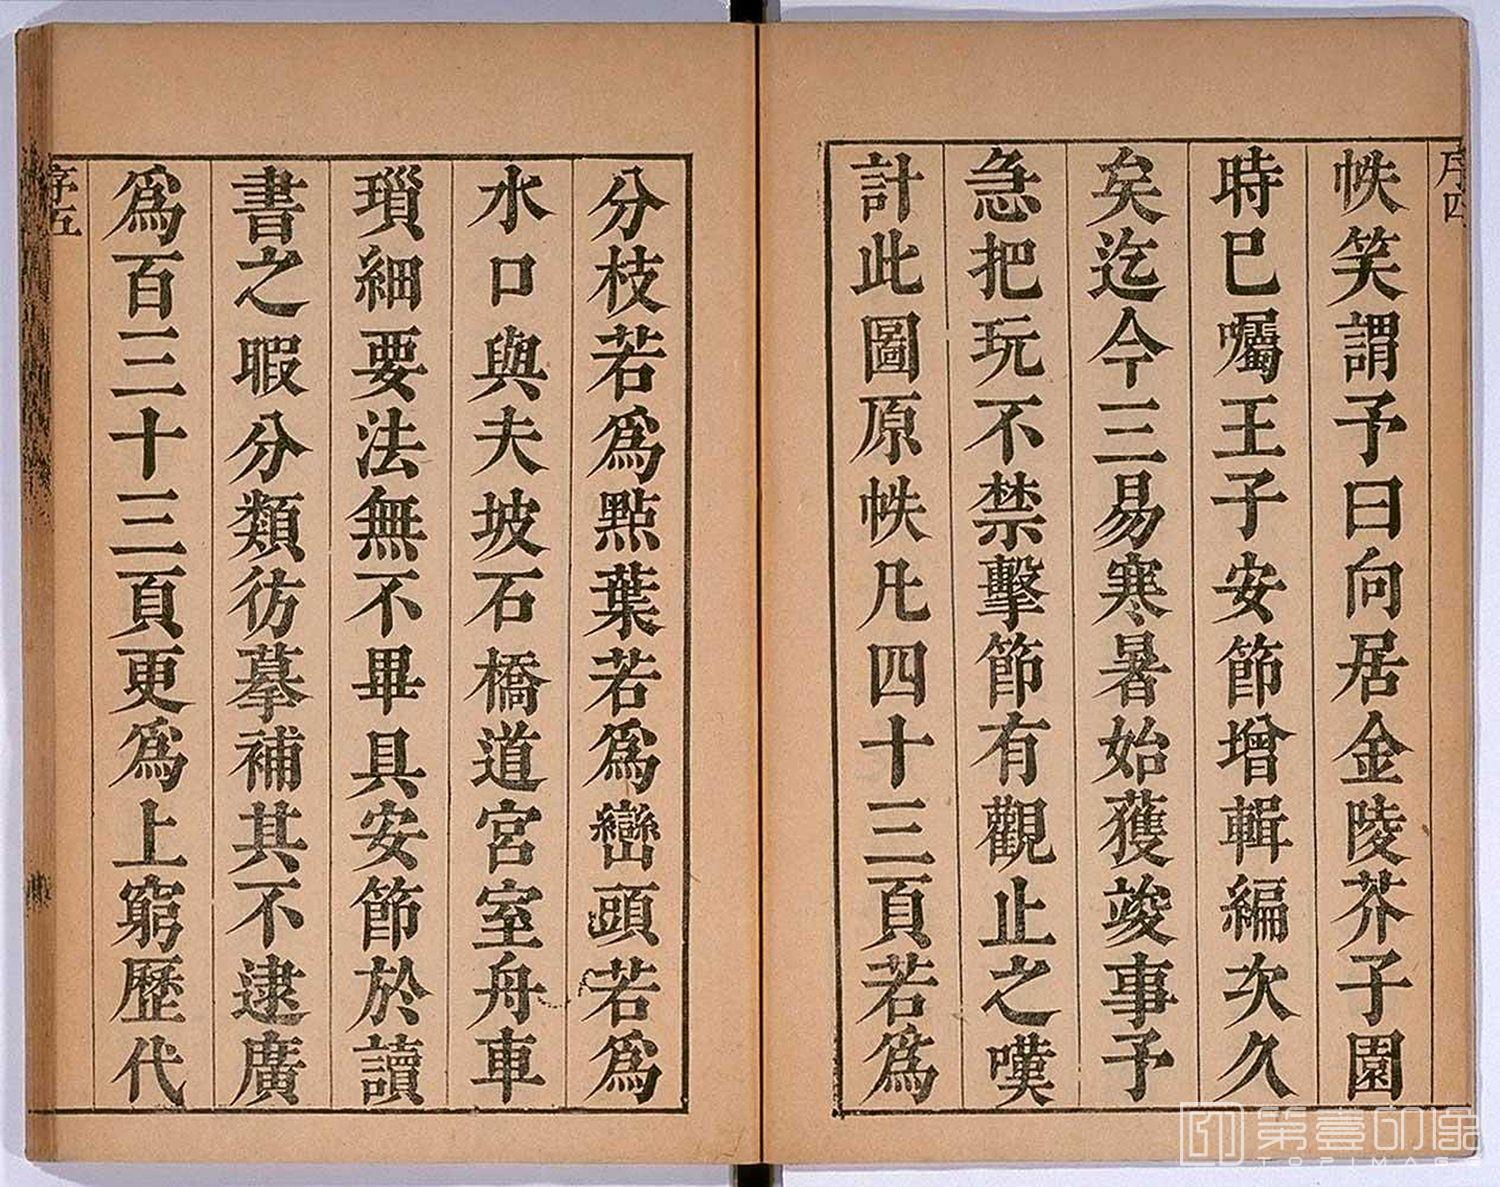 序四
帙笑謂予曰向居金陵芥子園
時已囑王子安節增輯編次久
矣迄今三易寒暑始獲竣事予
急把玩不禁擊節有觀止之嘆
計此圖原帙凡四十三頁若爲
分枝若爲點葉若爲巒頭若爲
水口與夫坡石橋道宮室舟車
瑣細要法無不畢具安節於讀
書之暇分類彷摹補其不逮廣
爲百三十三頁更爲上窮歷代
序五
第壹印像
TOPIMAGE